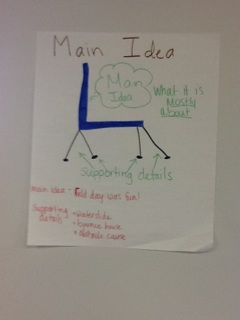 Main Idea
Main
Idea
What it is
Mostly
About
Supporting details
main idea - field day was fun!
Supporting
details
- waterslide
- bounce house